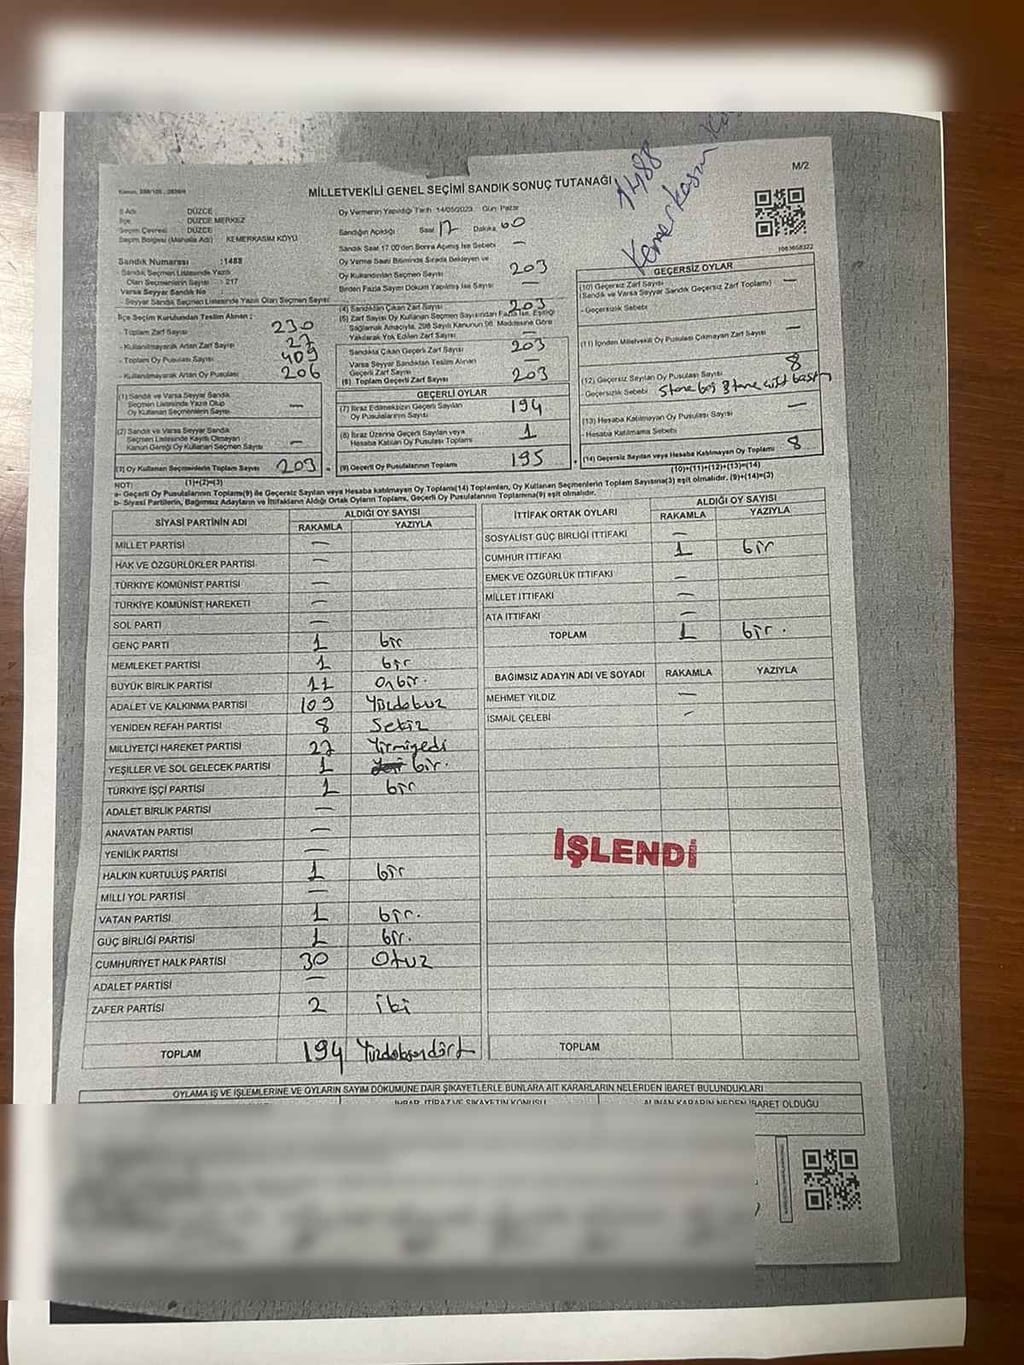 1488
Kemerkasım Kö
M/2
MİLLETVEKİLİ GENEL SEÇİMİ SANDIK SONUÇ TUTANAĞI
İl Adı : DÜZCE
İlçe : DÜZCE MERKEZ
Seçim Çevresi : DÜZCE
Seçim Bölgesi (Mahalle Adı) : KEMERKASIM KÖYÜ
Sandık Numarası : 1488
Sandık Seçmen Listesinde Yazılı
Olan Seçmenlerin Sayısı : 217
Varsa Seyyar Sandık No :
- Seyyar Sandık Seçmen Listesinde Yazılı Olan Seçmen Sayısı :
İlçe Seçim Kurulundan Teslim Alınan :
- Toplam Zarf Sayısı 230
- Kullanılmayarak Artan Zarf Sayısı 27
- Toplam Oy Pusulası Sayısı 409
- Kullanılmayarak Artan Oy Pusulası 206
(1) Sandık ve Varsa Seyyar Sandık
Seçmen Listesinde Yazılı Olup
Oy Kullanan Seçmenlerin Sayısı —
(2) Sandık ve Varsa Seyyar Sandık
Seçmen Listesinde Kayıtlı Olmayan
Kanun Gereği Oy Kullanan Seçmen Sayısı —
(3) Oy Kullanan Seçmenlerin Toplam Sayısı 203
(1)+(2)=(3)
Oy Vermenin Yapıldığı Tarih 14/05/2023 Gün: Pazar
Sandığın Açıldığı Saat 17 Dakika 00
Sandık Saat 17.00'den Sonra Açılmış İse Sebebi —
Oy Verme Saati Bitiminde Sırada Bekleyen ve
Oy Kullandırılan Seçmen Sayısı 203
Birden Fazla Sayım Döküm Yapılmış İse Sayısı —
(4) Sandıktan Çıkan Zarf Sayısı 203
(5) Zarf Sayısı Oy Kullanan Seçmen Sayısından Fazla İse, Eşitliği
Sağlamak Amacıyla, 298 Sayılı Kanunun 98. Maddesine Göre
Yakılarak Yok Edilen Zarf Sayısı —
Sandıkta Çıkan Geçerli Zarf Sayısı 203
Varsa Seyyar Sandıktan Teslim Alınan
Geçerli Zarf Sayısı —
(6) Toplam Geçerli Zarf Sayısı 203
GEÇERLİ OYLAR
(7) İtiraz Edilmeksizin Geçerli Sayılan
Oy Pusulalarının Sayısı 194
(8) İtiraz Üzerine Geçerli Sayılan veya
Hesaba Katılan Oy Pusulası Toplamı 1
(9) Geçerli Oy Pusulalarının Toplamı 195
1003058322
GEÇERSİZ OYLAR
(10) Geçersiz Zarf Sayısı
(Sandık ve Varsa Seyyar Sandık Geçersiz Zarf Toplamı) —
- Geçersizlik Sebebi
(11) İçinden Milletvekili Oy Pusulası Çıkmayan Zarf Sayısı —
(12) Geçersiz Sayılan Oy Pusulası Sayısı 8
- Geçersizlik Sebebi
(13) Hesaba Katılmayan Oy Pusulası Sayısı —
- Hesaba Katılmama Sebebi
(14) Geçersiz Sayılan veya Hesaba Katılmayan Oy Toplamı 8
(10)+(11)+(12)+(13)=(14)
NOT:
a- Geçerli Oy Pusulaları Toplamı(9) ile Geçersiz Sayılan veya Hesaba katılmayan Oy Toplamı(14) Toplamları, Oy Kullanan Seçmenlerin Toplam Sayısına(3) eşit olmalıdır. (9)+(14)=(3)
b- Siyasi Partilerin, Bağımsız Adayların ve İttifakların Aldığı Ortak Oyların Toplamı, Geçerli Oy Pusulalarının Toplamına(9) eşit olmalıdır.
SİYASİ PARTİNİN ADI ALDIĞI OY SAYISI
RAKAMLA YAZIYLA
MİLLET PARTİSİ —
HAK VE ÖZGÜRLÜKLER PARTİSİ —
TÜRKİYE KOMÜNİST PARTİSİ —
TÜRKİYE KOMÜNİST HAREKETİ —
SOL PARTİ —
GENÇ PARTİ 1 bir
MEMLEKET PARTİSİ 1 bir
BÜYÜK BİRLİK PARTİSİ 11 Onbir.
ADALET VE KALKINMA PARTİSİ 109 Yüzdokuz
YENİDEN REFAH PARTİSİ 8 Sekiz
MİLLİYETÇİ HAREKET PARTİSİ 27 Yirmiyedi
YEŞİLLER VE SOL GELECEK PARTİSİ 1 bir.
TÜRKİYE İŞÇİ PARTİSİ 1 bir
ADALET BİRLİK PARTİSİ —
ANAVATAN PARTİSİ —
YENİLİK PARTİSİ —
HALKIN KURTULUŞ PARTİSİ 1 bir
MİLLİ YOL PARTİSİ —
VATAN PARTİSİ 1 bir.
GÜÇ BİRLİĞİ PARTİSİ 1 bir.
CUMHURİYET HALK PARTİSİ 30 Otuz
ADALET PARTİSİ —
ZAFER PARTİSİ 2 iki
TOPLAM 194 Yüzdoksandört
İTTİFAK ORTAK OYLARI ALDIĞI OY SAYISI
RAKAMLA YAZIYLA
SOSYALİST GÜÇ BİRLİĞİ İTTİFAKI —
CUMHUR İTTİFAKI 1 bir
EMEK VE ÖZGÜRLÜK İTTİFAKI —
MİLLET İTTİFAKI —
ATA İTTİFAKI —
TOPLAM 1 bir.
BAĞIMSIZ ADAYIN ADI VE SOYADI RAKAMLA YAZIYLA
MEHMET YILDIZ —
İSMAİL ÇELEBİ —
İŞLENDİ
TOPLAM
OYLAMA İŞ VE İŞLEMLERİNE VE OYLARIN SAYIM DÖKÜMÜNE DAİR ŞİKAYETLERLE BUNLARA AİT KARARLARIN NELERDEN İBARET BULUNDUKLARI
İHBAR, İTİRAZ VE ŞİKAYETİN KONUSU ALINAN KARARIN NEDEN İBARET OLDUĞU